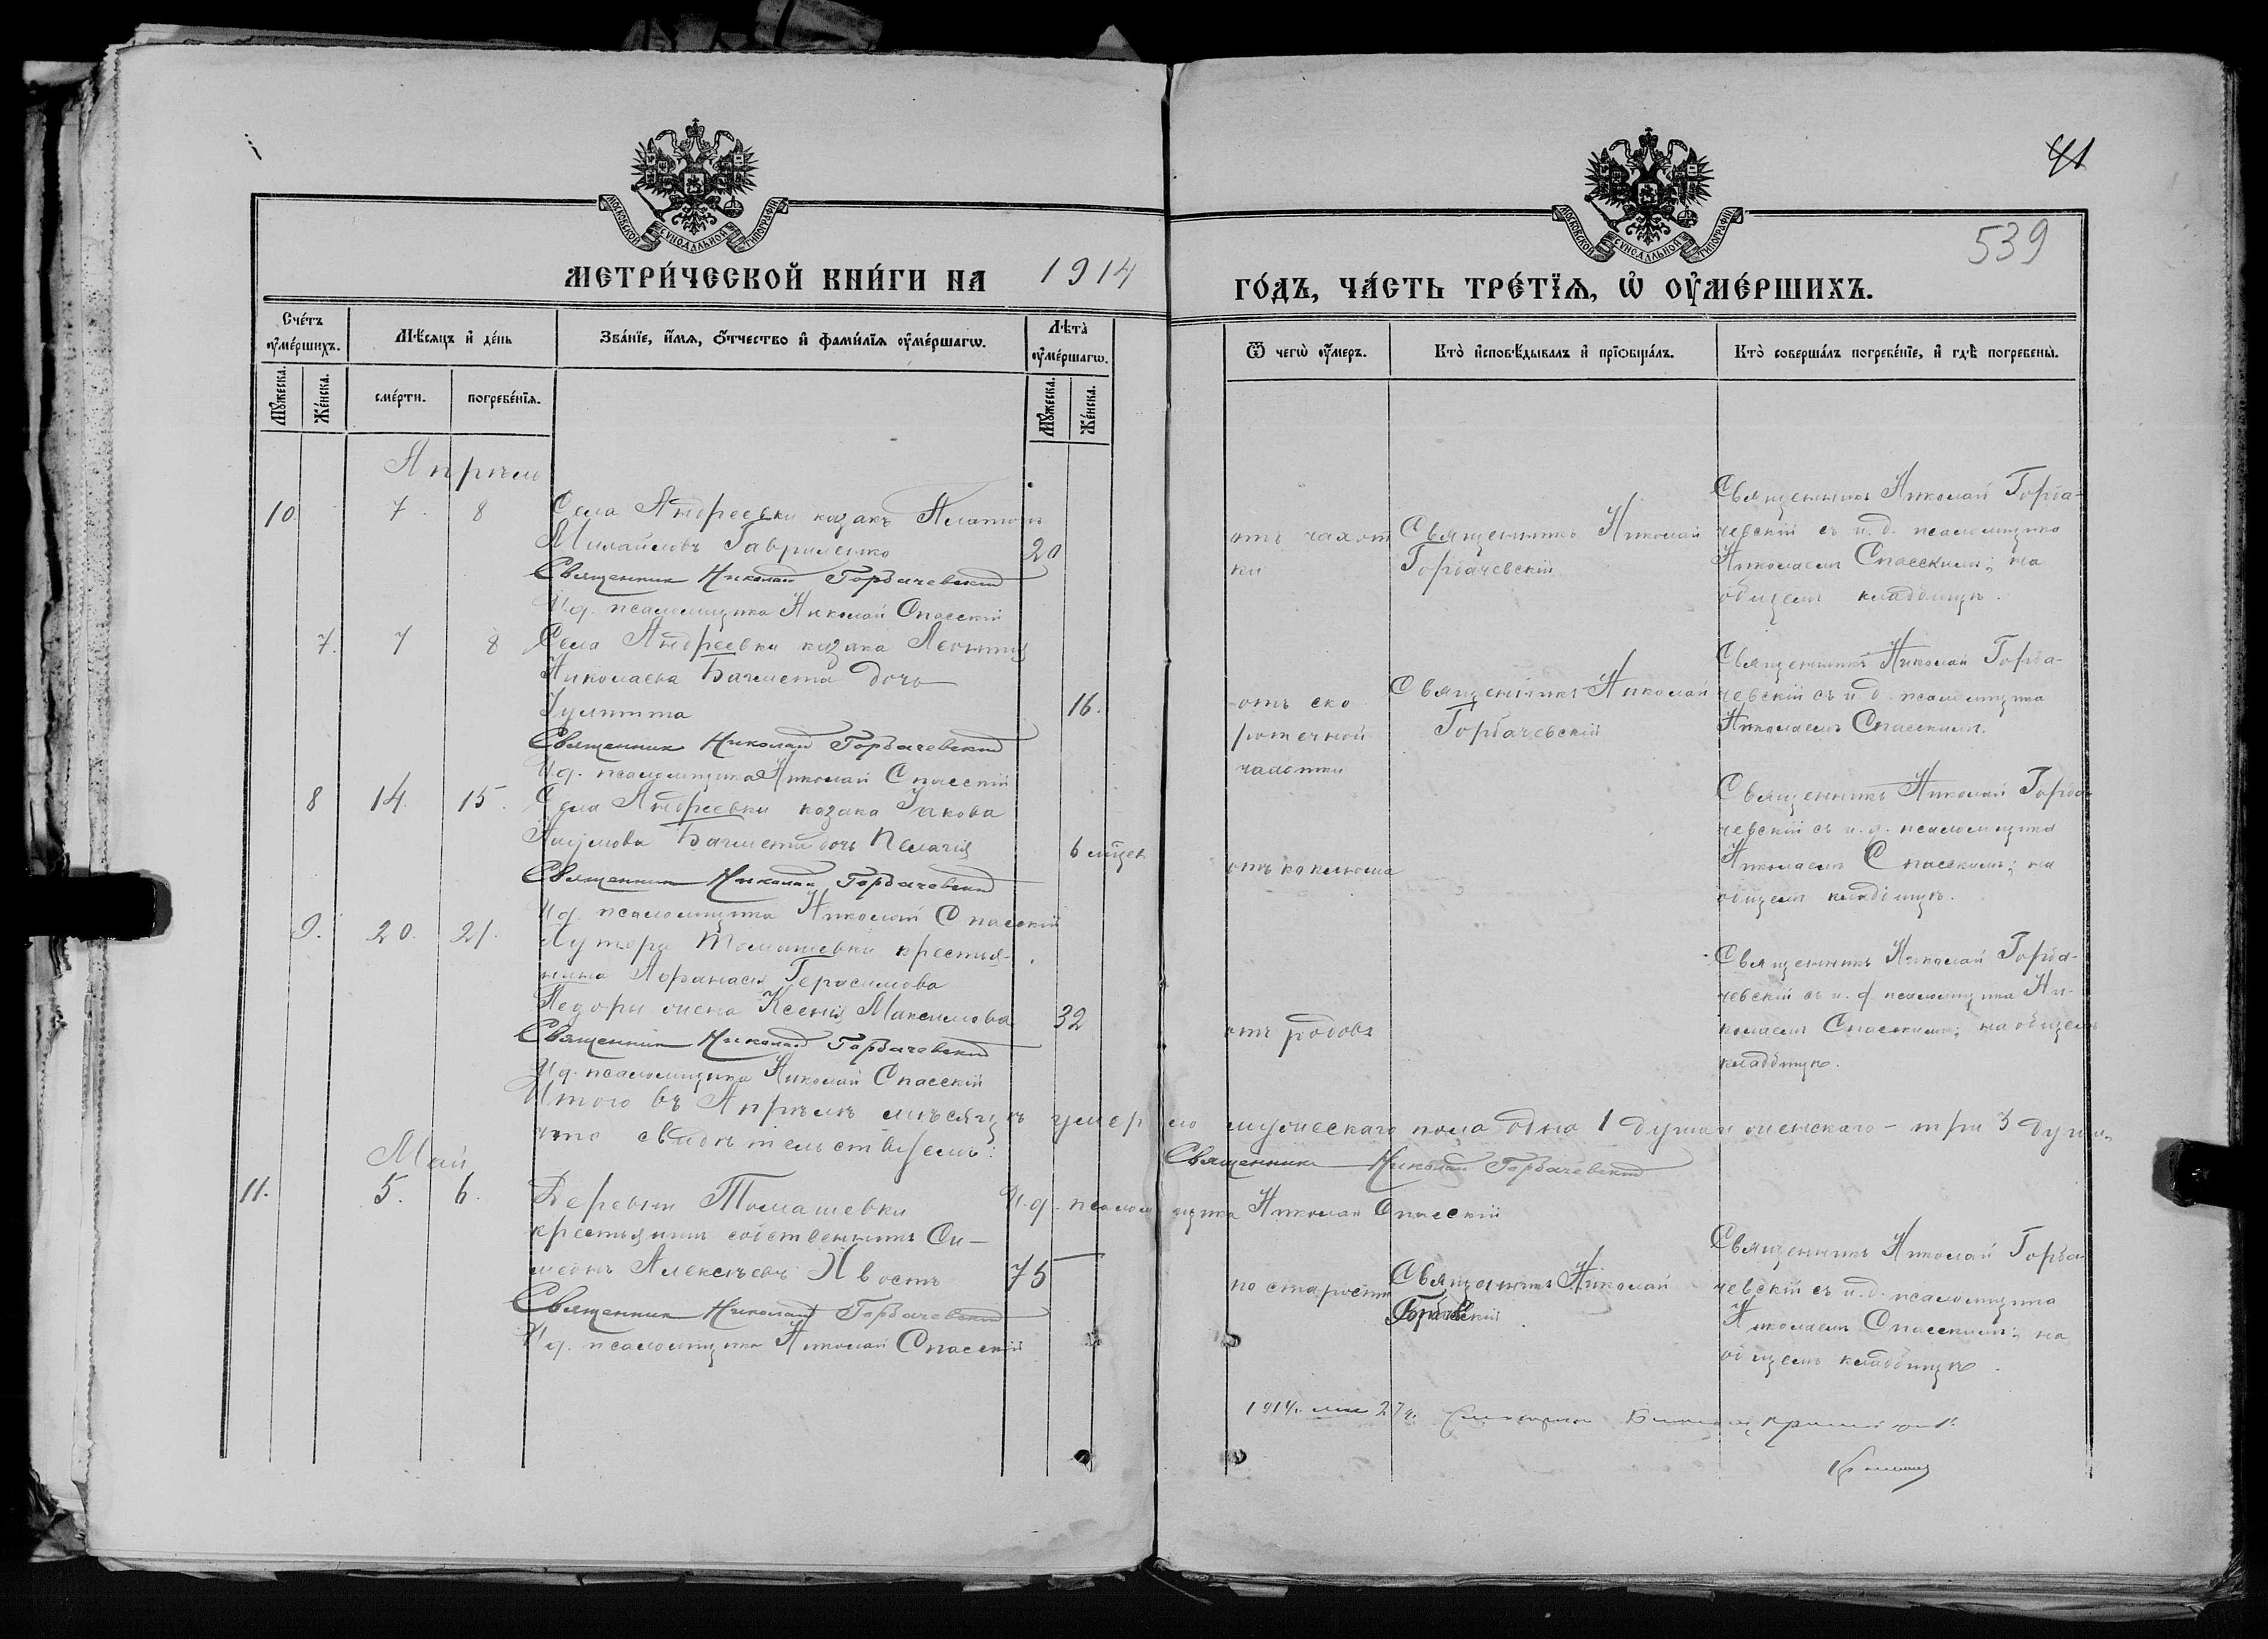 41
539
МОСКОВСКОЙ СѴНОДАЛЬНОЙ ТИПОГРАФІИ
МОСКОВСКОЙ СѴНОДАЛЬНОЙ ТИПОГРАФІИ
МЕТРИ́ЧЕСКОЙ КНИ́ГИ НА 1914
ГО́ДЪ, ЧА́СТЬ ТРЕ́ТЇѦ, Ѡ҆ ОУ҆МЕ́РШИХЪ.
Сче́тъ оу҆ме́ршихъ.
Мꙋ́жеска.
Же́нска.
Мѣ́сѧцъ и҆ де́нь
сме́рти.
погребе́нїѧ.
Зва́нїе, и҆́мѧ, ѻ҆́тчество и҆ фами́лїѧ оу҆ме́ршагѡ.
Лѣ̑та̀ оу҆ме́ршагѡ.
Мꙋ́жеска.
Же́нска.
Ѿ чегѡ̀ оу҆́меръ.
Кто̀ и҆сповѣ́дывалъ и҆ прїѡбща́лъ.
Кто̀ соверша́лъ погребе́нїе, и҆ гдѣ̀ погребены̀.
Апрѣль
10. 7. 8
Села Андреевки казакъ Платонъ
Михайловъ Гавриленко
20
Священник Николай Горбачевский
И.д. псаломщика Николай Спасскій
отъ чахот
ки
Священникъ Николай
Горбачевскій
Священникъ Николай Горба-
чевскій съ и.д. псаломщика
Николаемъ Спасскимъ; на
общемъ кладбищѣ.
7. 7 8
Села Андреевки казака Леонтія
Николаева Бахмета дочь
Іулитта
16.
Священник Николай Горбачевский
И.д. псаломщика Николай Спасскій
отъ ско
ротечной
чахотки
Священникъ Николай
Горбачевскій
Священникъ Николай Горба-
чевскій съ и.д. псаломщика
Николаемъ Спасскимъ.
8 14. 15.
Села Андреевки казака Іакова
Бахмета дочь Пелагія
6 мѣсец
Священник Николай Горбачевский
И.д. псаломщика Николай Спасскій
отъ коклюша
Священникъ Николай Горба-
чевскій съ и.д. псаломщика
Николаемъ Спасскимъ; на
общемъ кладбищѣ.
9. 20. 21.
Хутора Томашевки крестья-
нина Афанасія Герасимова
жена Ксенія Максимова
32
Священник Николай Горбачевский
И.д. псаломщика Николай Спасскій
отъ родовъ
Священникъ Николай Горба-
чевскій съ и.д. псаломщика Ни-
колаемъ Спасскимъ; на общемъ
кладбищѣ.
Итого въ Апрѣлѣ мѣсяцѣ умерло мужескаго пола одна 1 душа и женскаго - три 3 души,
что свидѣтельствуемъ:
Священник Николай Горбачевский
И.д. псаломщика Николай Спасскій
Май
11. 5. 6.
Деревни Томашевки
крестьянинъ собственникъ Си-
меонъ Алексѣевъ Хвостъ
75
Священник Николай Горбачевский
И.д. псаломщика Николай Спасскій
по старости
Священникъ Николай
Горбачевскій
Священникъ Николай Горба-
чевскій съ и.д. псаломщика
Николаемъ Спасскимъ; на
общемъ кладбищѣ.
1914. 27